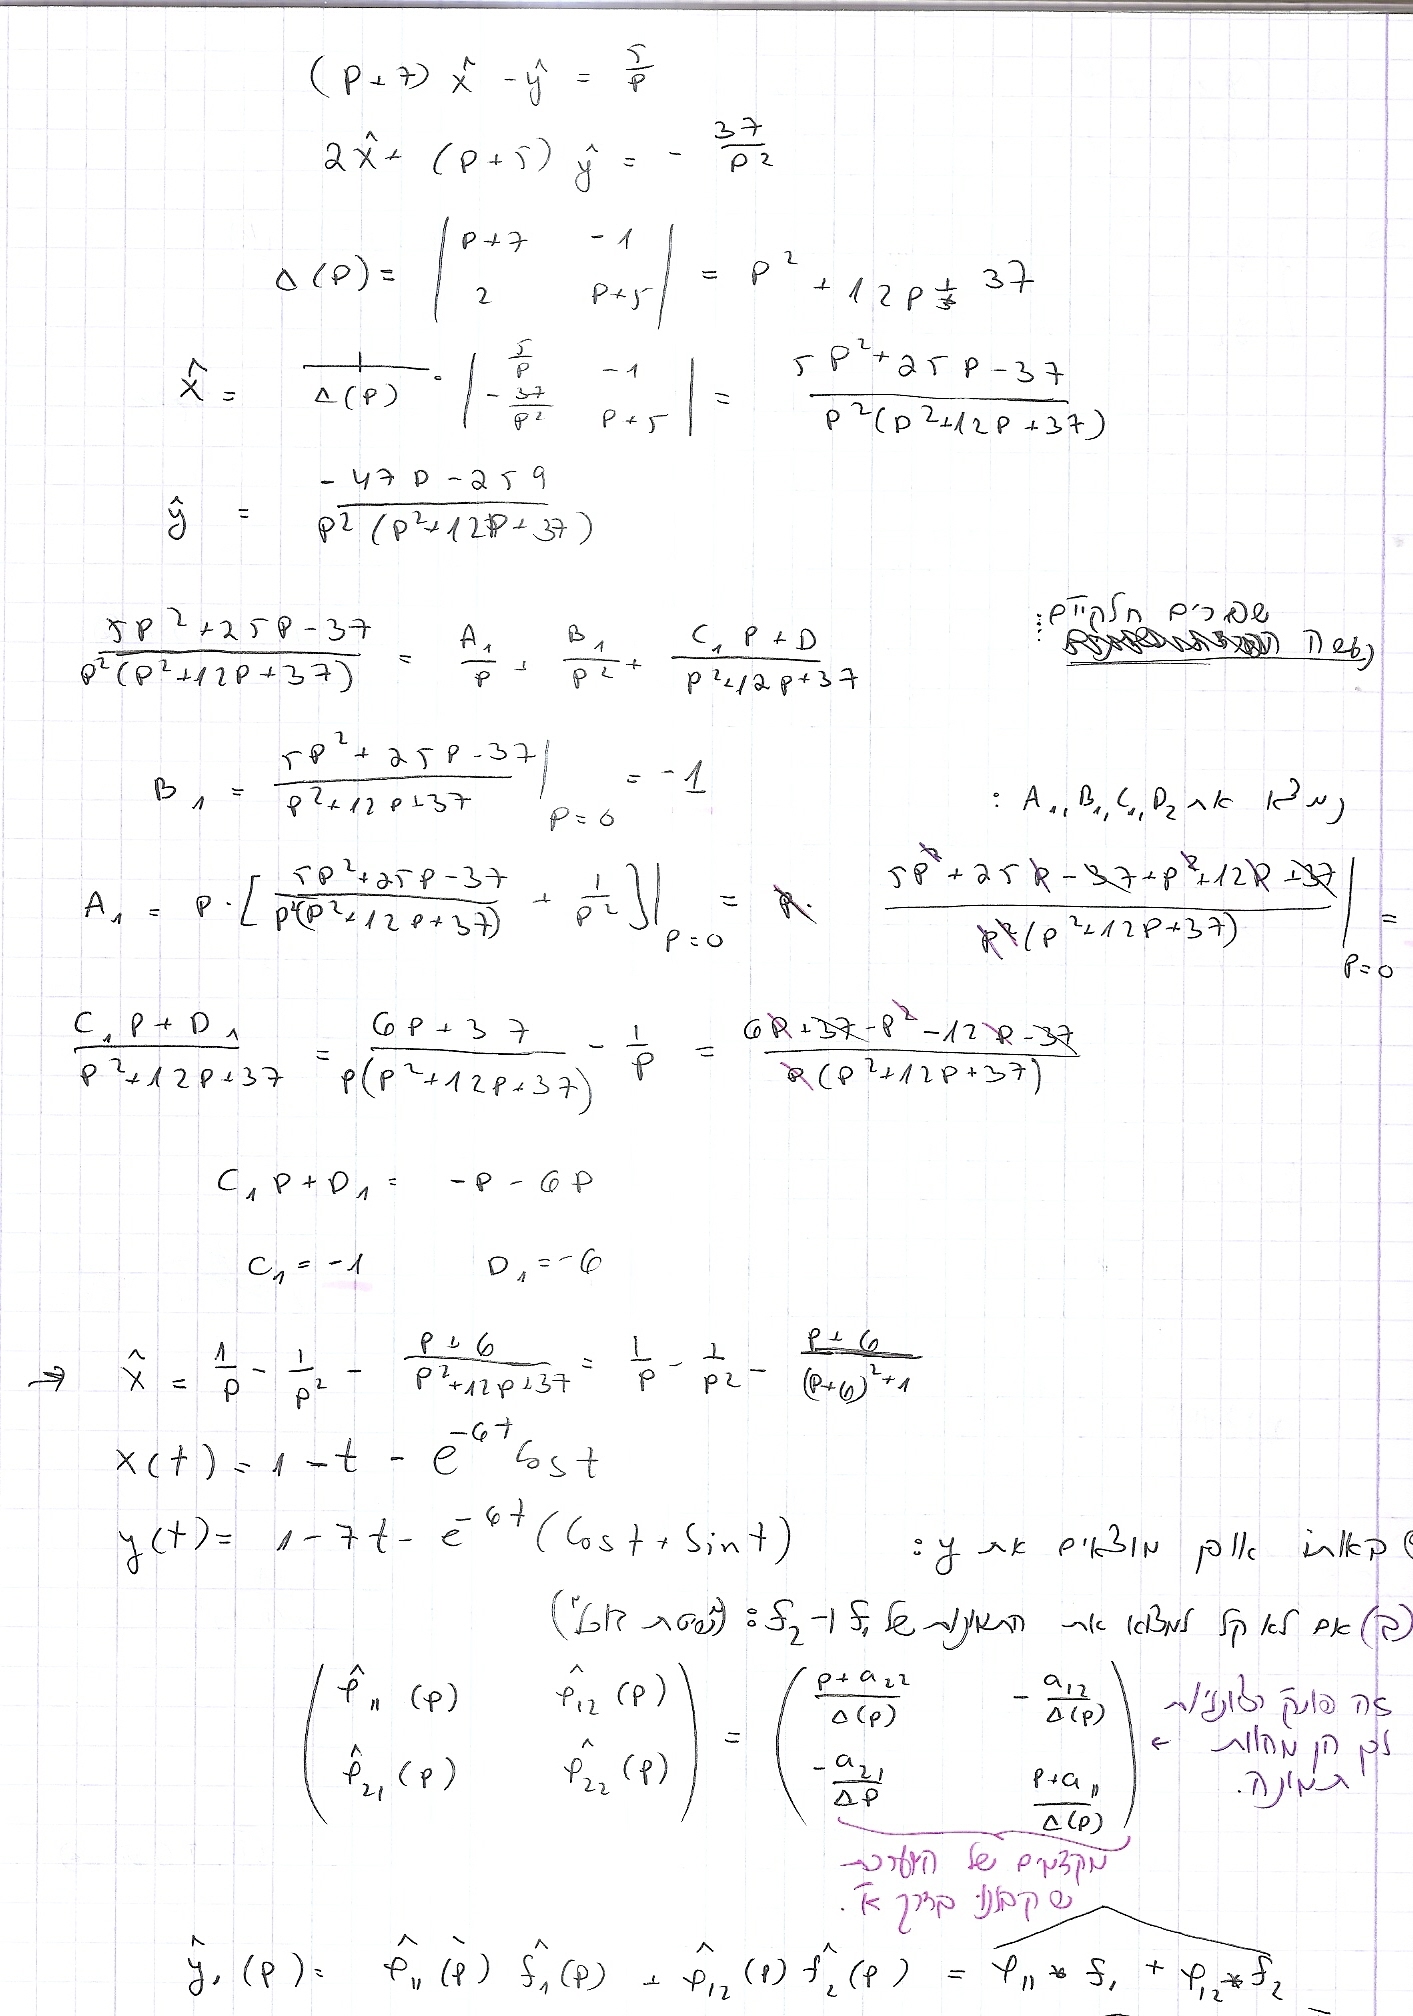 (p+7) x̂ - ŷ = 5/p
2x̂ + (p+5) ŷ = - 37/p²
Δ(p) = | p+7 -1 ; 2 p+5 | = p² + 12p + 37
x̂ = 1/Δ(p) · | 5/p -1 ; -37/p² p+5 | = (5p²+25p-37)/(p²(p²+12p+37))
ŷ = (-47p-259)/(p²(p²+12p+37))
נעשה שברים חלקיים:
(5p²+25p-37)/(p²(p²+12p+37)) = A₁/p + B₁/p² + (C₁p+D)/(p²+12p+37)
נמצא את A₁, B₁, C₁, D₂ :
B₁ = (5p²+25p-37)/(p²+12p+37) |p=0 = -1
A₁ = p·[(5p²+25p-37)/(p²(p²+12p+37)) + 1/p²]|p=0 = p· (5p²+25p-37+p²+12p+37)/(p²(p²+12p+37)) |p=0 =
(C₁p+D₁)/(p²+12p+37) = (6p+37)/(p(p²+12p+37)) - 1/p = (6p+37-p²-12p-37)/(p(p²+12p+37))
C₁p+D₁ = -p-6p
C₁=-1 D₁=-6
→ x̂ = 1/p - 1/p² - (p+6)/(p²+12p+37) = 1/p - 1/p² - (p+6)/((p+6)²+1)
x(t) = 1-t - e^(-6t) cos t
באותו אופן מוצאים את y:
y(t) = 1-7t - e^(-6t) (cos t + sin t)
(ב) אם לא קל למצוא את התמונות של f₁ ו-f₂:
( φ̂₁₁(p) φ̂₁₂(p) ; φ̂₂₁(p) φ̂₂₂(p) ) = ( (p+a₂₂)/Δ(p) -a₁₂/Δ(p) ; -a₂₁/Δp (p+a₁₁)/Δ(p) )
לכן הן מהוות
תמונה.
מקדמים של המערכת
שקבלנו בדרך א'.
ŷ₁(p) = φ̂₁₁(p) f̂₁(p) + φ̂₁₂(p) f̂₂(p) = φ₁₁ * f₁ + φ₁₂ * f₂